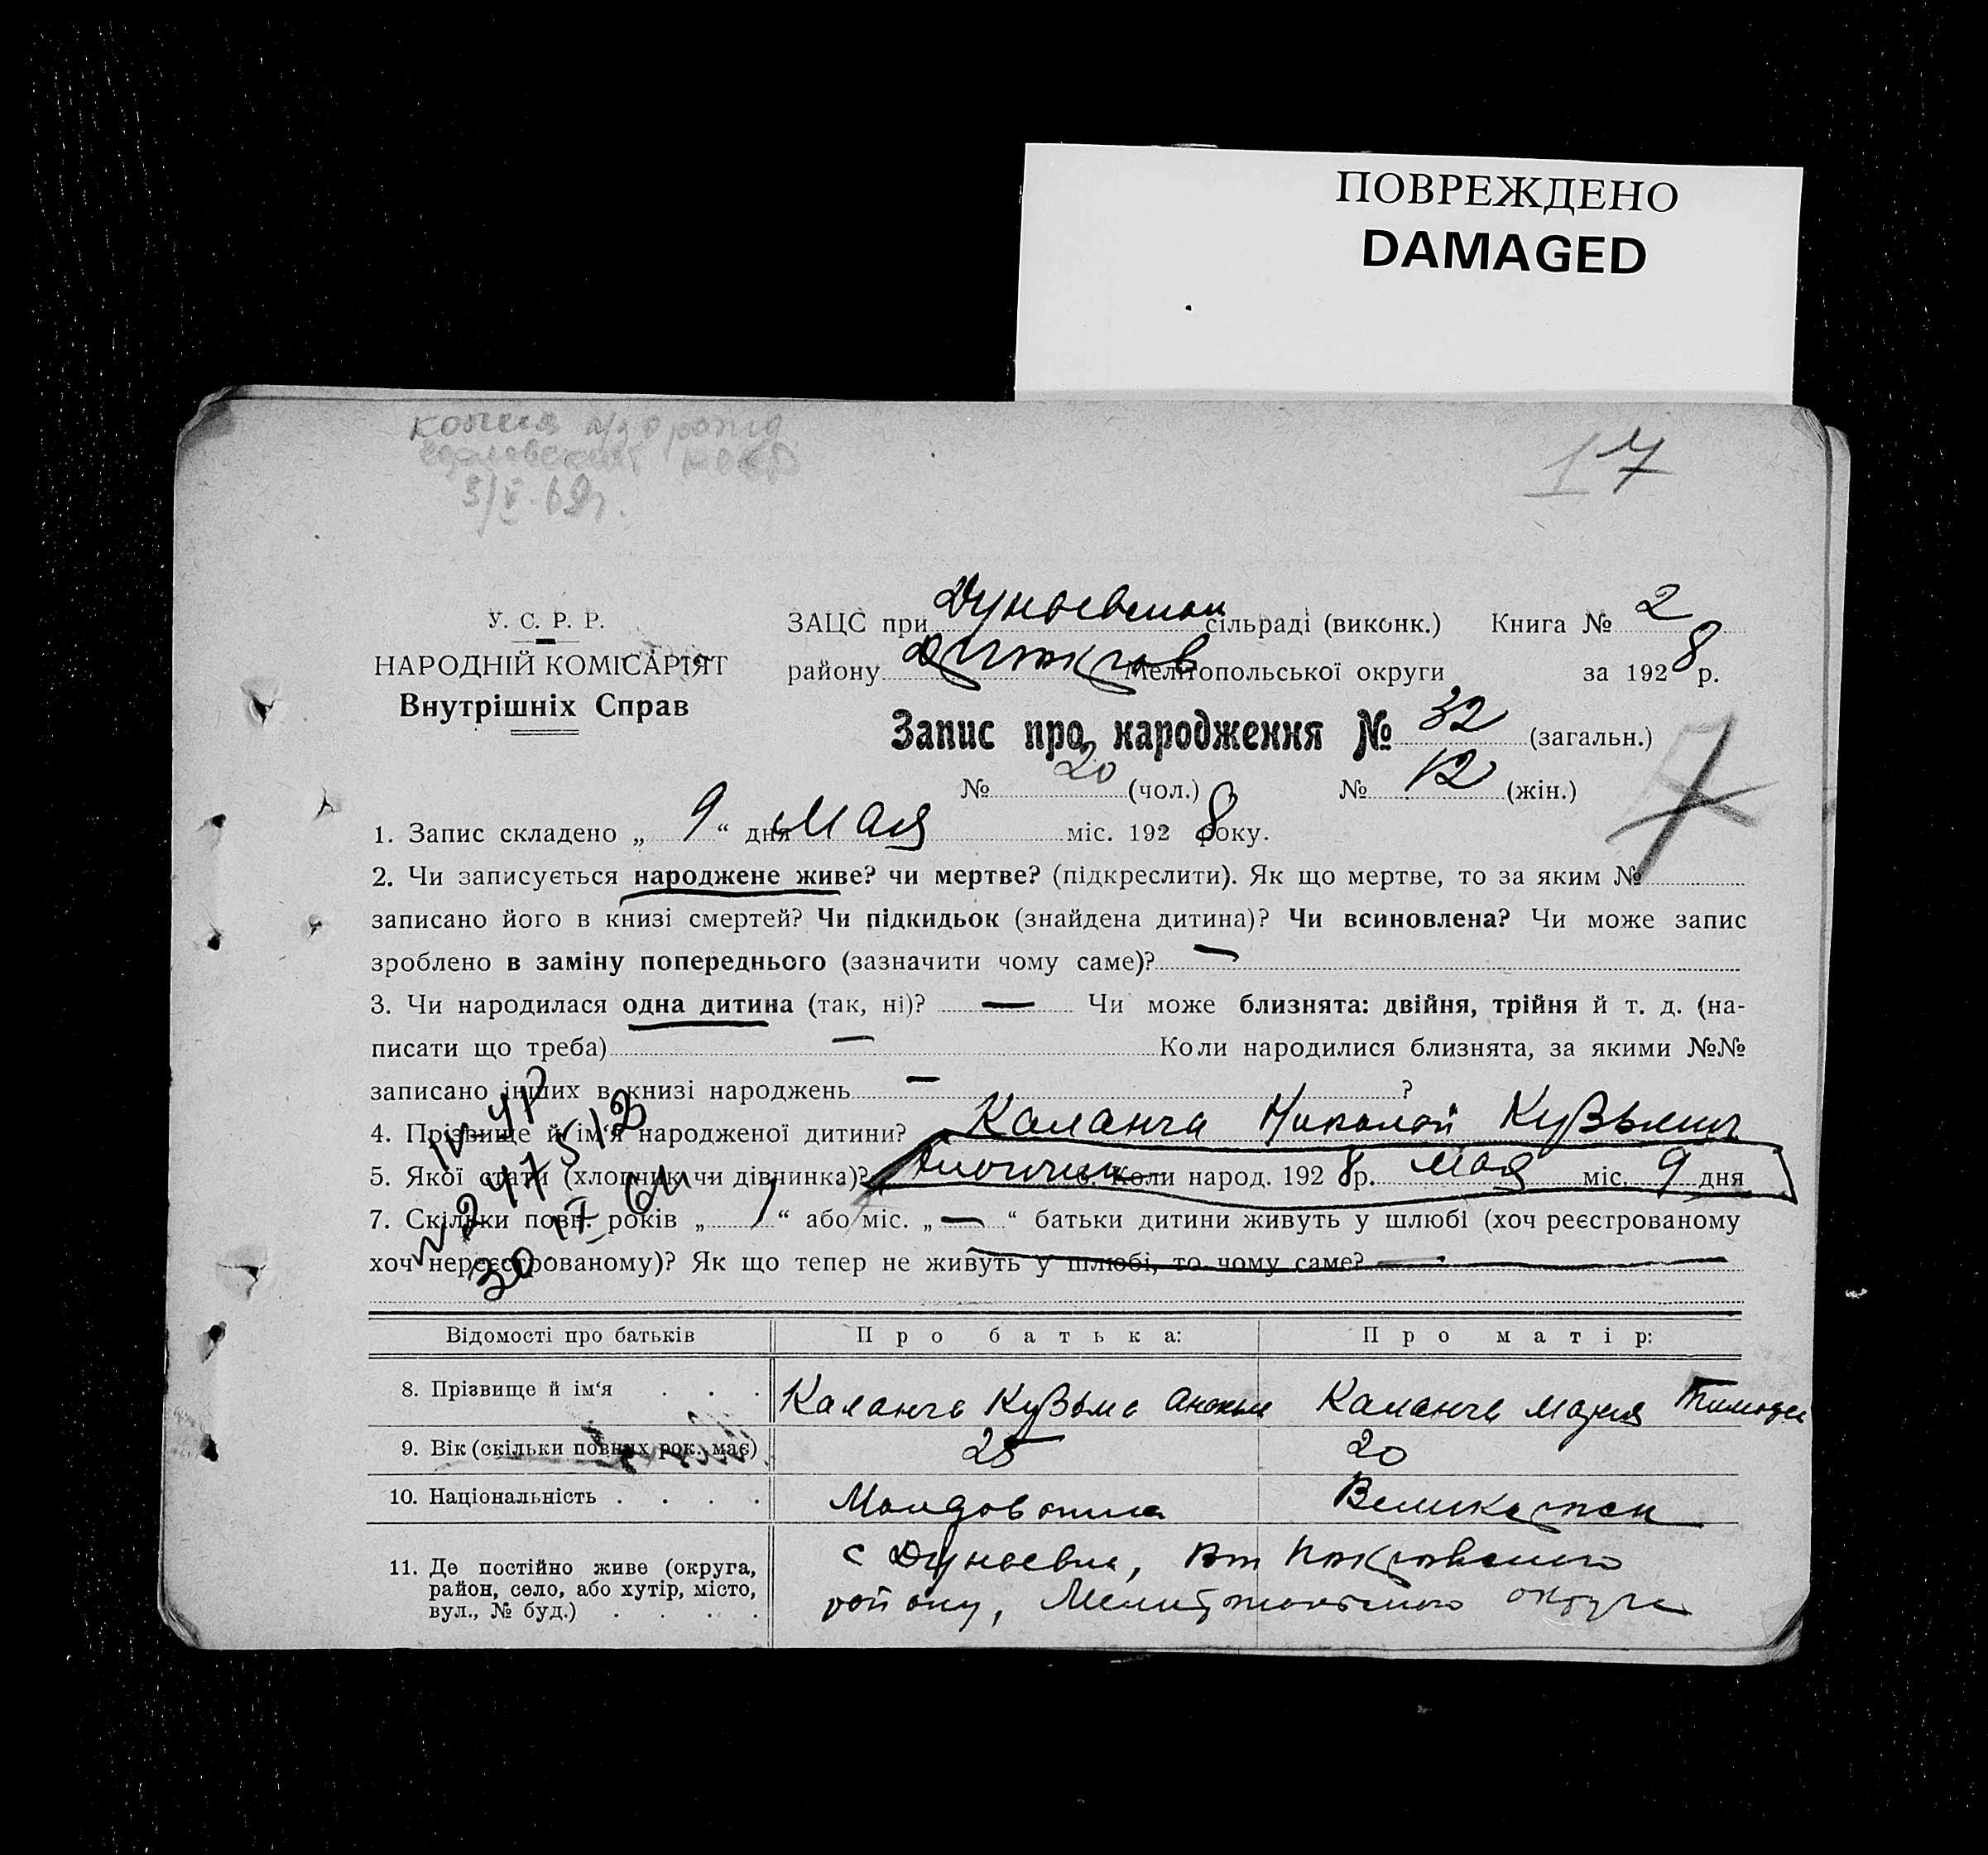 ПОВРЕЖДЕНО
DAMAGED
копия
17
У. С. Р. Р.
НАРОДНІЙ КОМІСАРІЯТ
Внутрішніх Справ
ЗАЦС при Дунаевской сільраді (виконк.) Книга № 2
району Мелітопольської округи за 1928 р.
Запис про народження № 32 (загальн.)
№ 20 (чол.) № 12 (жін.)
7
1. Запис складено „ 9 “ дня Мая міс. 1928 року.
2. Чи записується народжене живе? чи мертве? (підкреслити). Як що мертве, то за яким №
записано його в книзі смертей? Чи підкидьок (знайдена дитина)? Чи всиновлена? Чи може запис
зроблено в заміну попереднього (зазначити чому саме)? —
3. Чи народилася одна дитина (так, ні)? — Чи може близнята: двійня, трійня й т. д. (на-
писати що треба) — Коли народилися близнята, за якими №№
записано інших в книзі народжень — ?
4. Прізвище й ім‘я народженої дитини? Каланча Николай Кузьмич
5. Якої стати (хлопчик чи дівчинка)? хлопчик 6. Коли народ. 1928 р. мая міс. 9 дня
7. Скільки повн. років „ 1 “ або міс. „ — “ батьки дитини живуть у шлюбі (хоч реєстрованому
хоч нереєстрованому)? Як що тепер не живуть у шлюбі, то чому саме? —
Відомості про батьків Про батька: Про матір:
8. Прізвище й ім‘я . . . Каланча Кузьма Каланча Мария Тимофе
9. Вік (скільки повних рок. має) 25 20
10. Національність . . . . Молдованин
11. Де постійно живе (округа, с Дунаевка,
район, село, або хутір, місто, району, Мелитопольского округа
вул., № буд.) . . . .